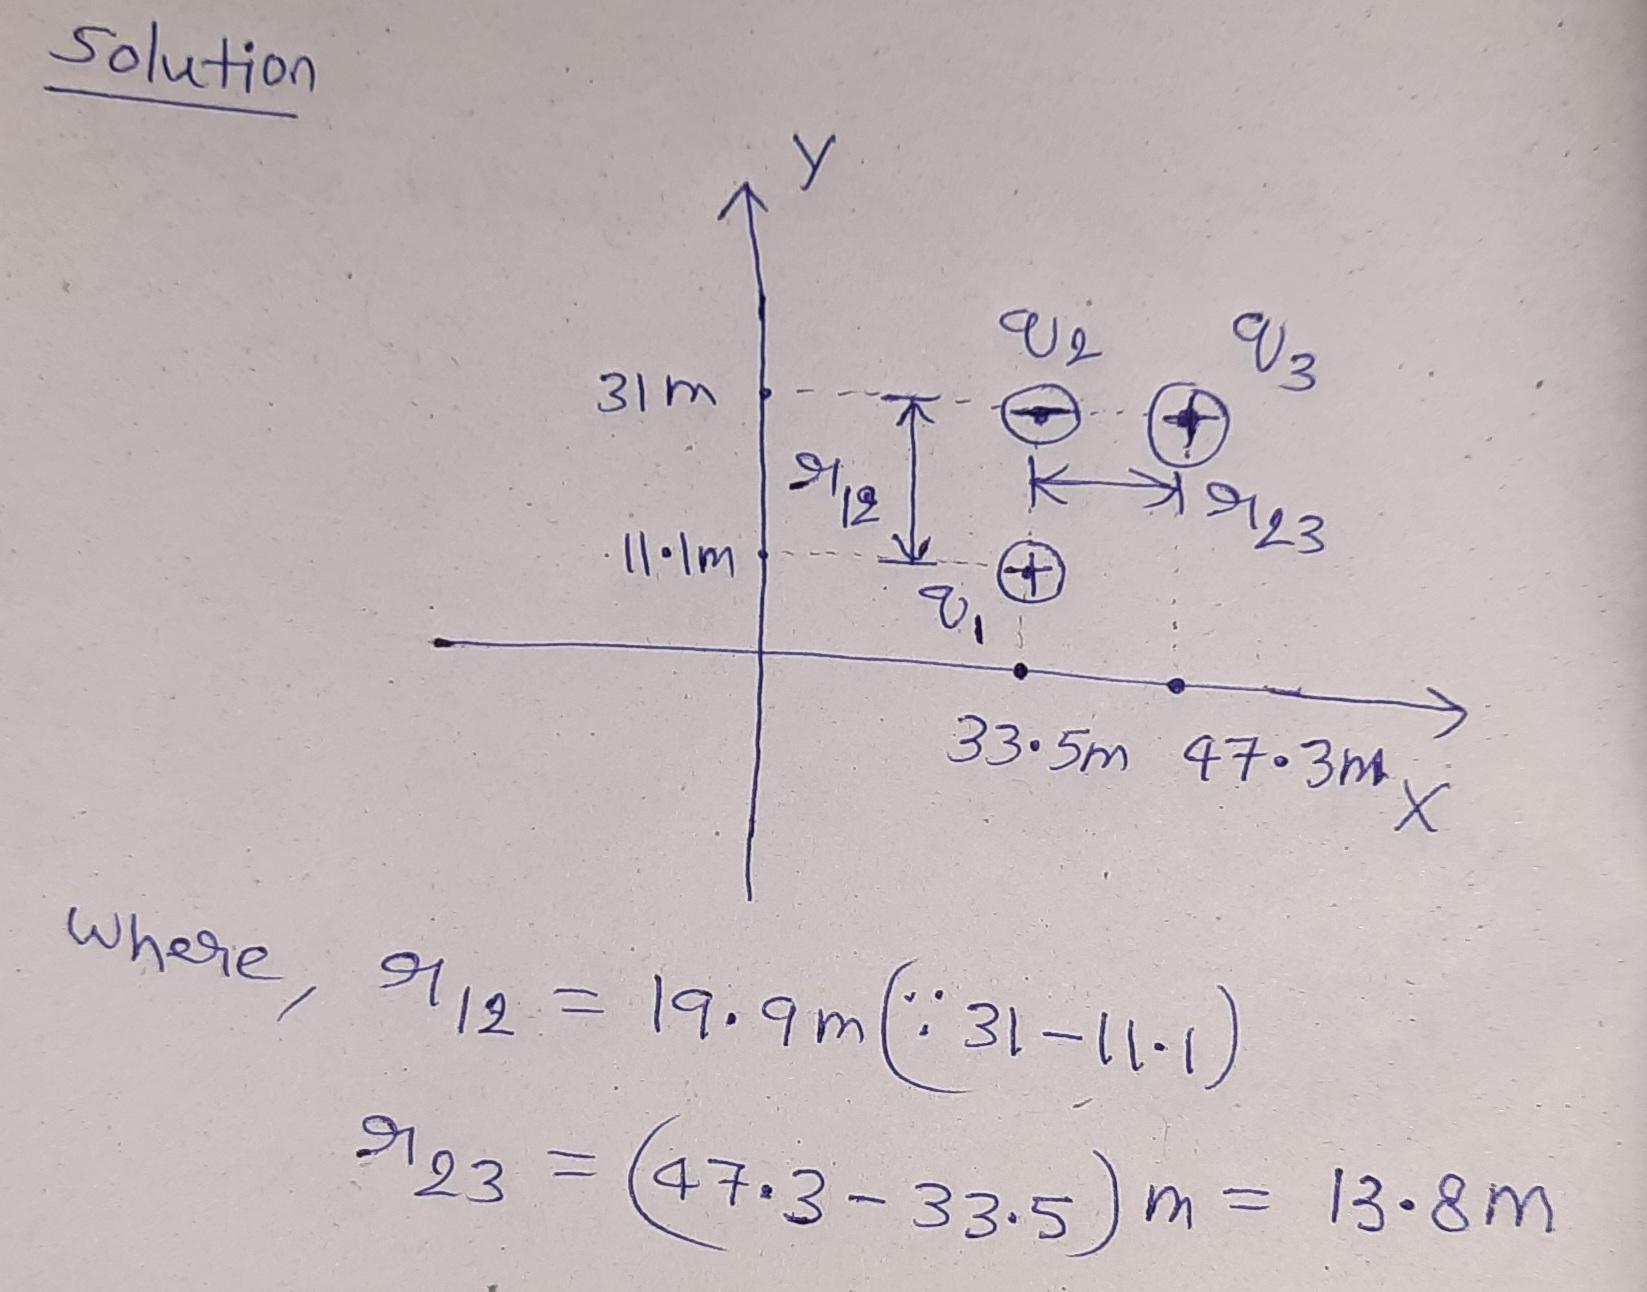 Solution
Y
q2 q3
31m
r12
r23
11.1m
q1
33.5m 47.3m
X
where, r12 = 19.9m (∵ 31-11.1)
r23 = (47.3-33.5) m = 13.8m